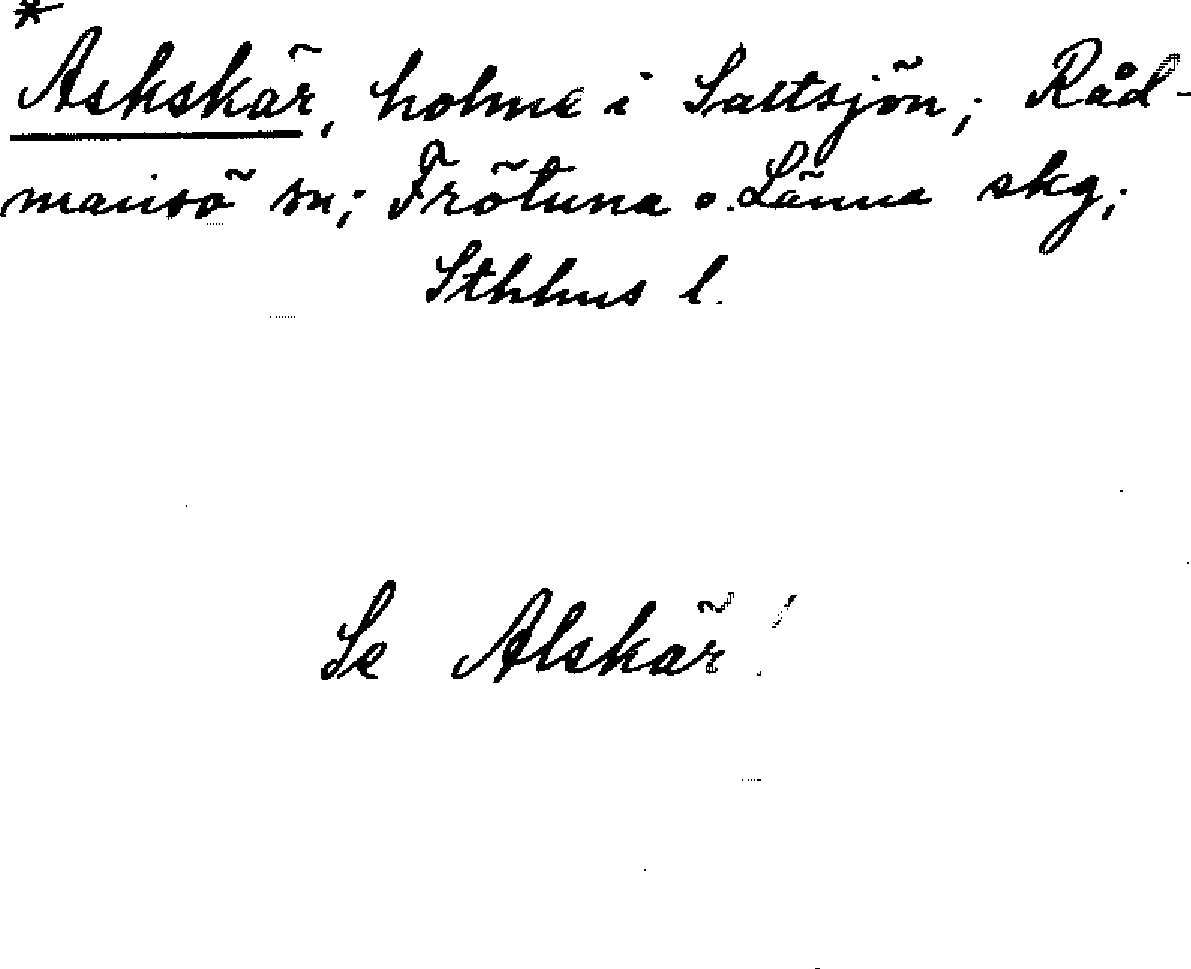 *
Askskär, holme i Saltsjön; Råd-
mansö sn; Frötuna o. Länna skg;
Sthhus l.
Se Alskär!